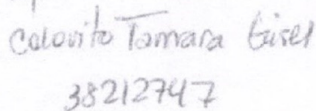 Colovito Tamara Gisel
38212747